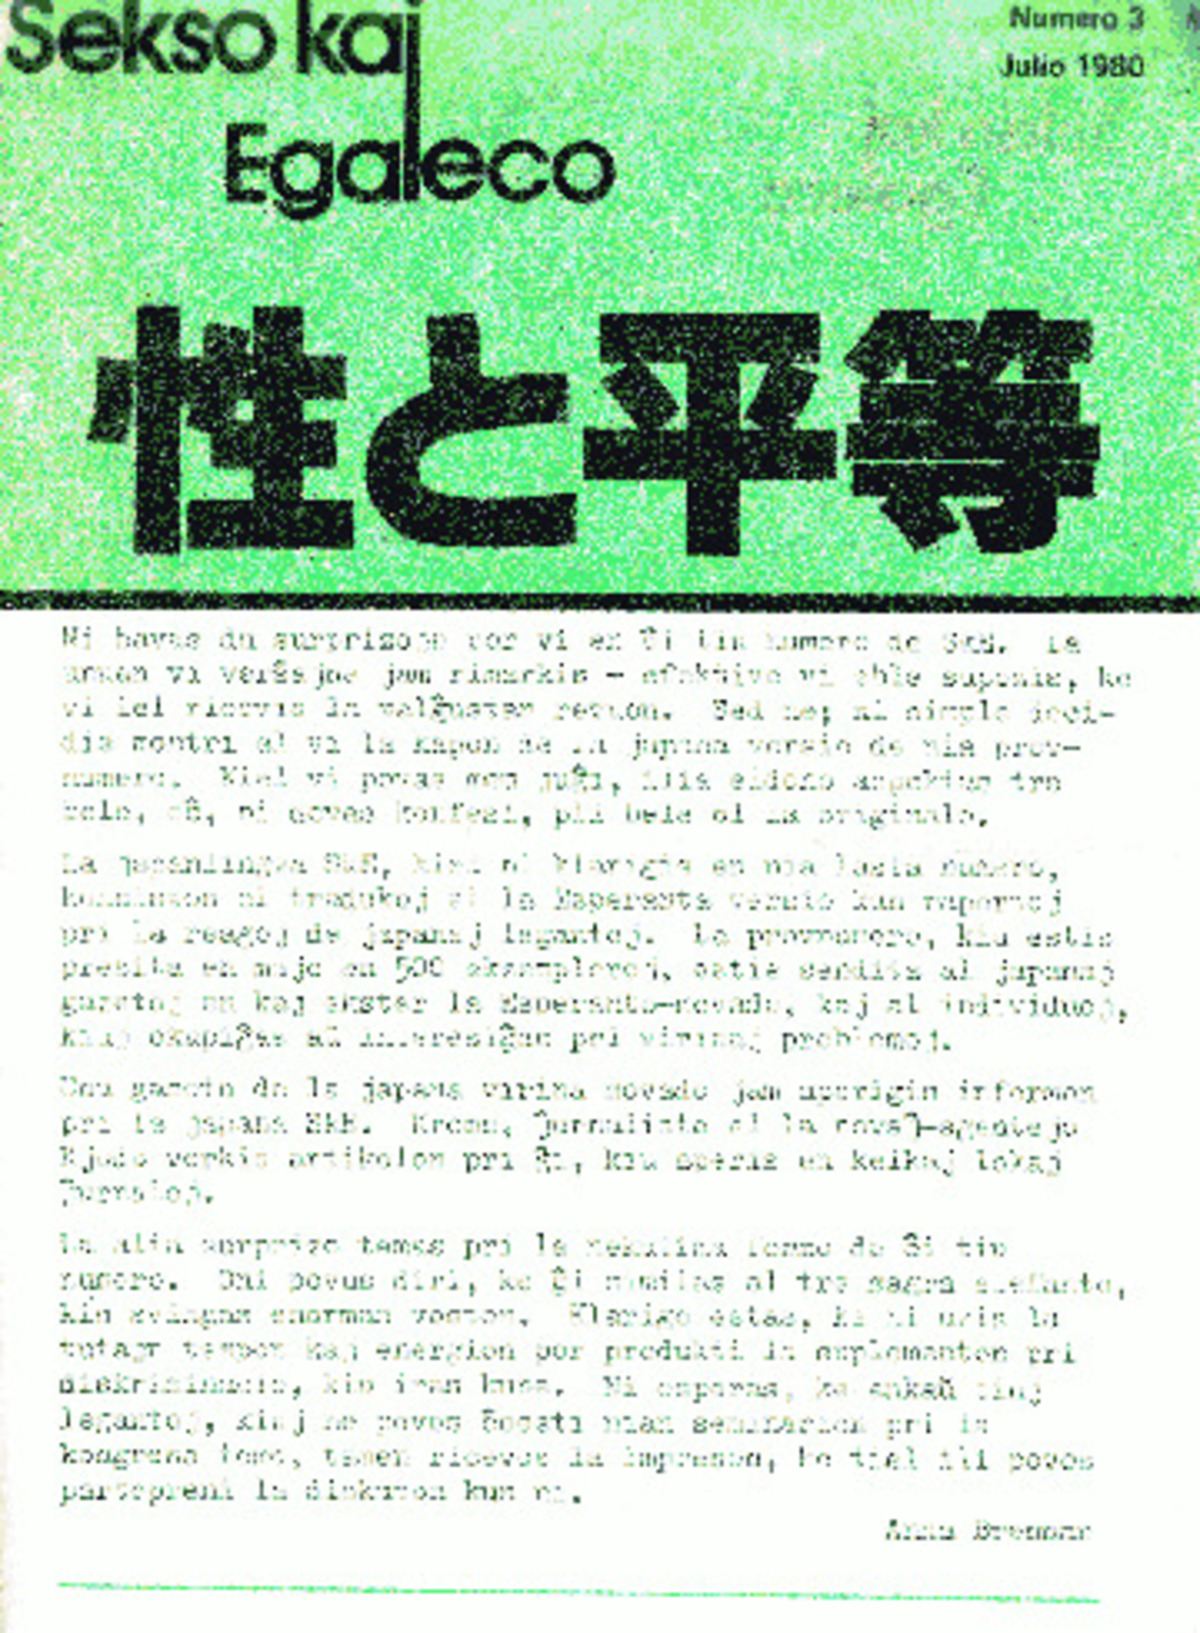 Sekso kaj
Numero 3
Julio 1980
Egaleco
性と平等
Ni havas du surprizojn por vi en ĉi tiu numero de SkE. La
unuan vi verŝajne jam rimarkis - efektive vi eble supozis, ke
vi ricevis la malĝustan revuon. Sed ne; ni simple deci-
dis montri al vi la kapon de la japana versio de nia prov-
numero. Kiel vi povas mem juĝi, ĝia eldono aspektas tre
bele, eĉ, ni devas konfesi, pli bele ol la originalo.
La japanlingva SkE, kiun ni klarigis en nia lasta numero,
konsistas el tradukoj el la Esperanta versio kun raportoj
pri la reagoj de japanaj legantoj. La provnumero, kiu estis
presita en majo en 500 ekzempleroj, estis sendita al japanaj
gazetoj en kaj ekster la Esperanto-movado, kaj al individuoj,
kiuj okupiĝas aŭ interesiĝas pri virinaj problemoj.
Unu gazeto de la japana virina movado jam aperigis informon
pri la japana SkE. Krome, ĵurnalisto el la novaĵ-agentejo
Kjodo verkis artikolon pri ĝi, kiu aperis en kelkaj lokaj
ĵurnaloj.
La alia surprizo temas pri la nekutima formo de ĉi tiu
numero. Oni povus diri, ke ĝi similas al tre magra elefanto,
kiu svingas enorman voston. Klarigo estas, ke ni uzis la
tutan tempon kaj energion por produkti la suplementon pri
diskriminacio, kiu iras kune. Ni esperas, ke ankaŭ tiuj
legantoj, kiuj ne povos ĉeesti nian seminarion pri la
kongresa temo, tamen ricevos la impreson, ke tiel ili povos
partopreni la diskuton kun ni.
Anna Brennan